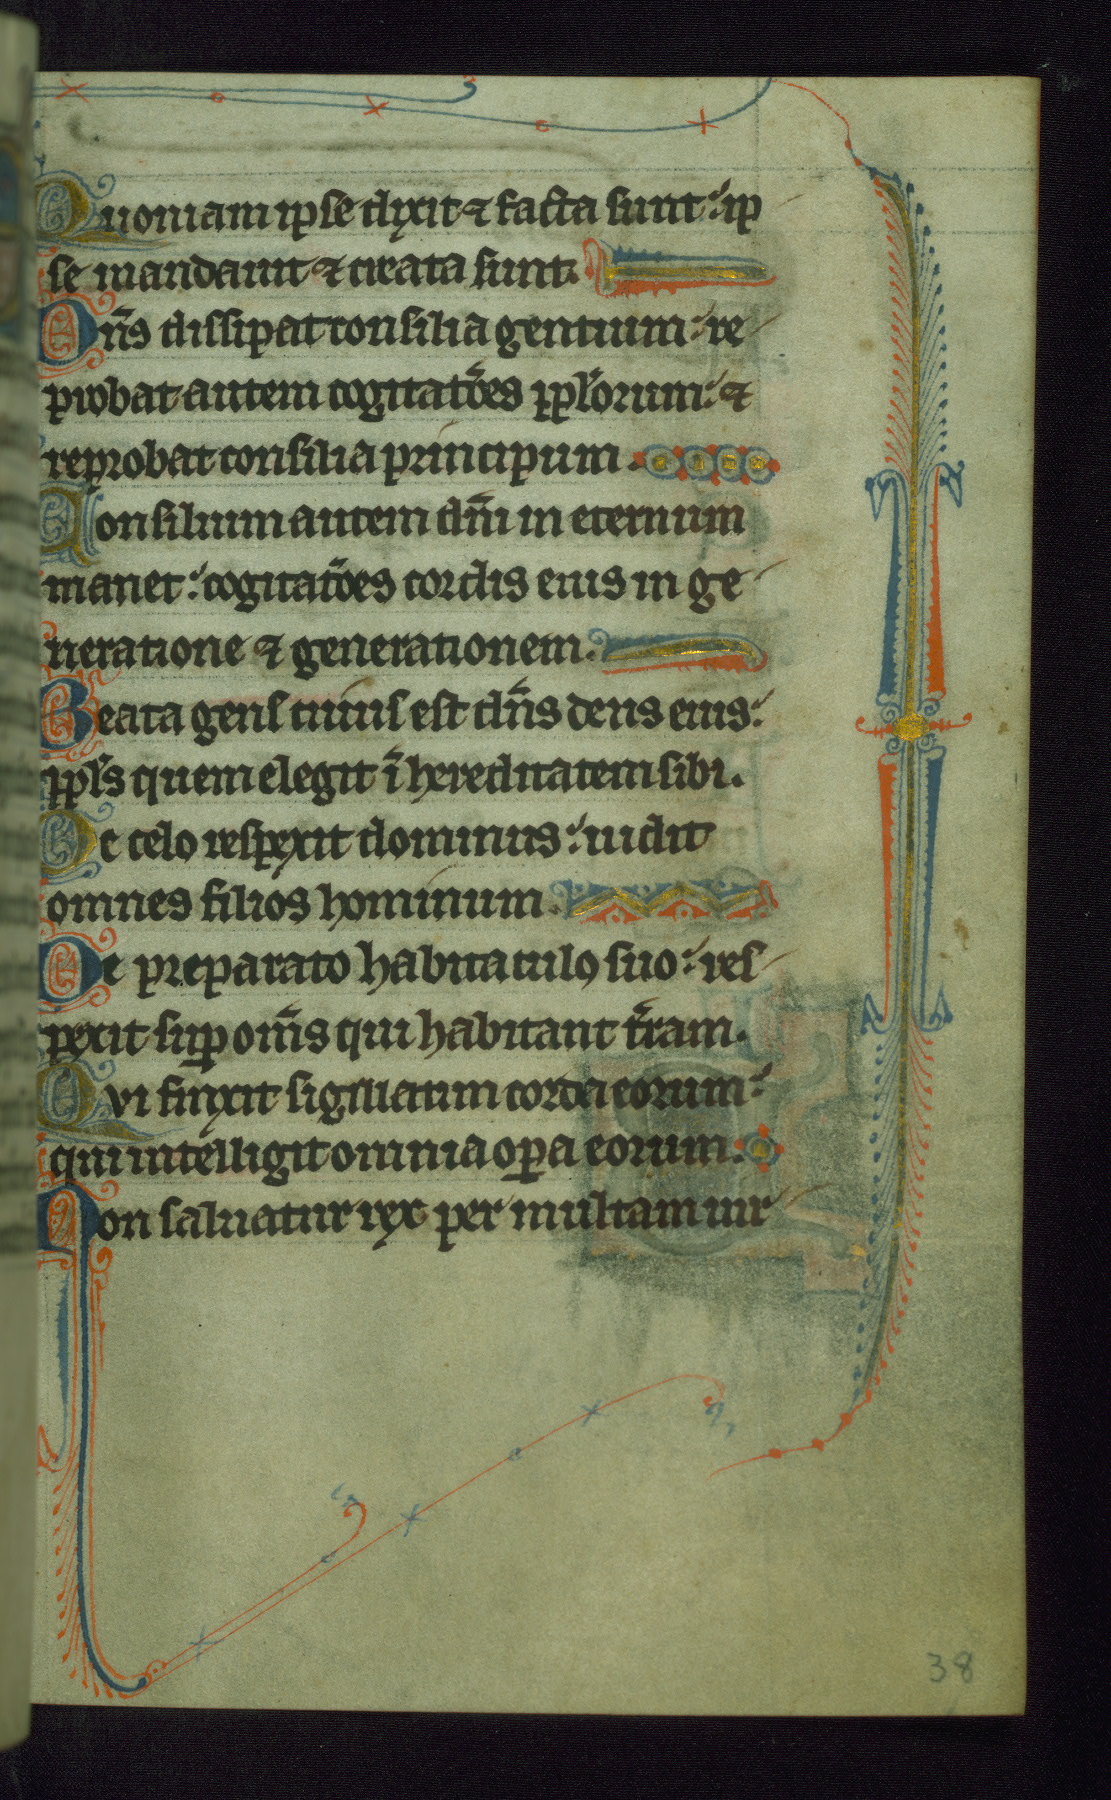 Quoniam ip̄se dixit ⁊ facta sunt: ip
se mandauit ⁊ creata sunt.
Dn̄s dissipat consilia gentium: re
probat autem cogitatōes pp̄lorum: ⁊
reprobat consilia principum.
Consilium autem dn̄i in eternum
manet: cogitatōes cordis eius in ge
neratione ⁊ generationem.
Beata gens cuius est dn̄s deus eius:
pp̄ls quem elegit ī hereditatem sibi.
De celo respexit dominus: uidit
omnes filios hominum.
De preparato habitaculo suo: res
pexit sup̄ om̄s qui habitant tr̄am.
Qui finxit sigillatim corda eorum:
qui intelligit omnia op̄a eorum.
Non saluatur rex per multam uir
38